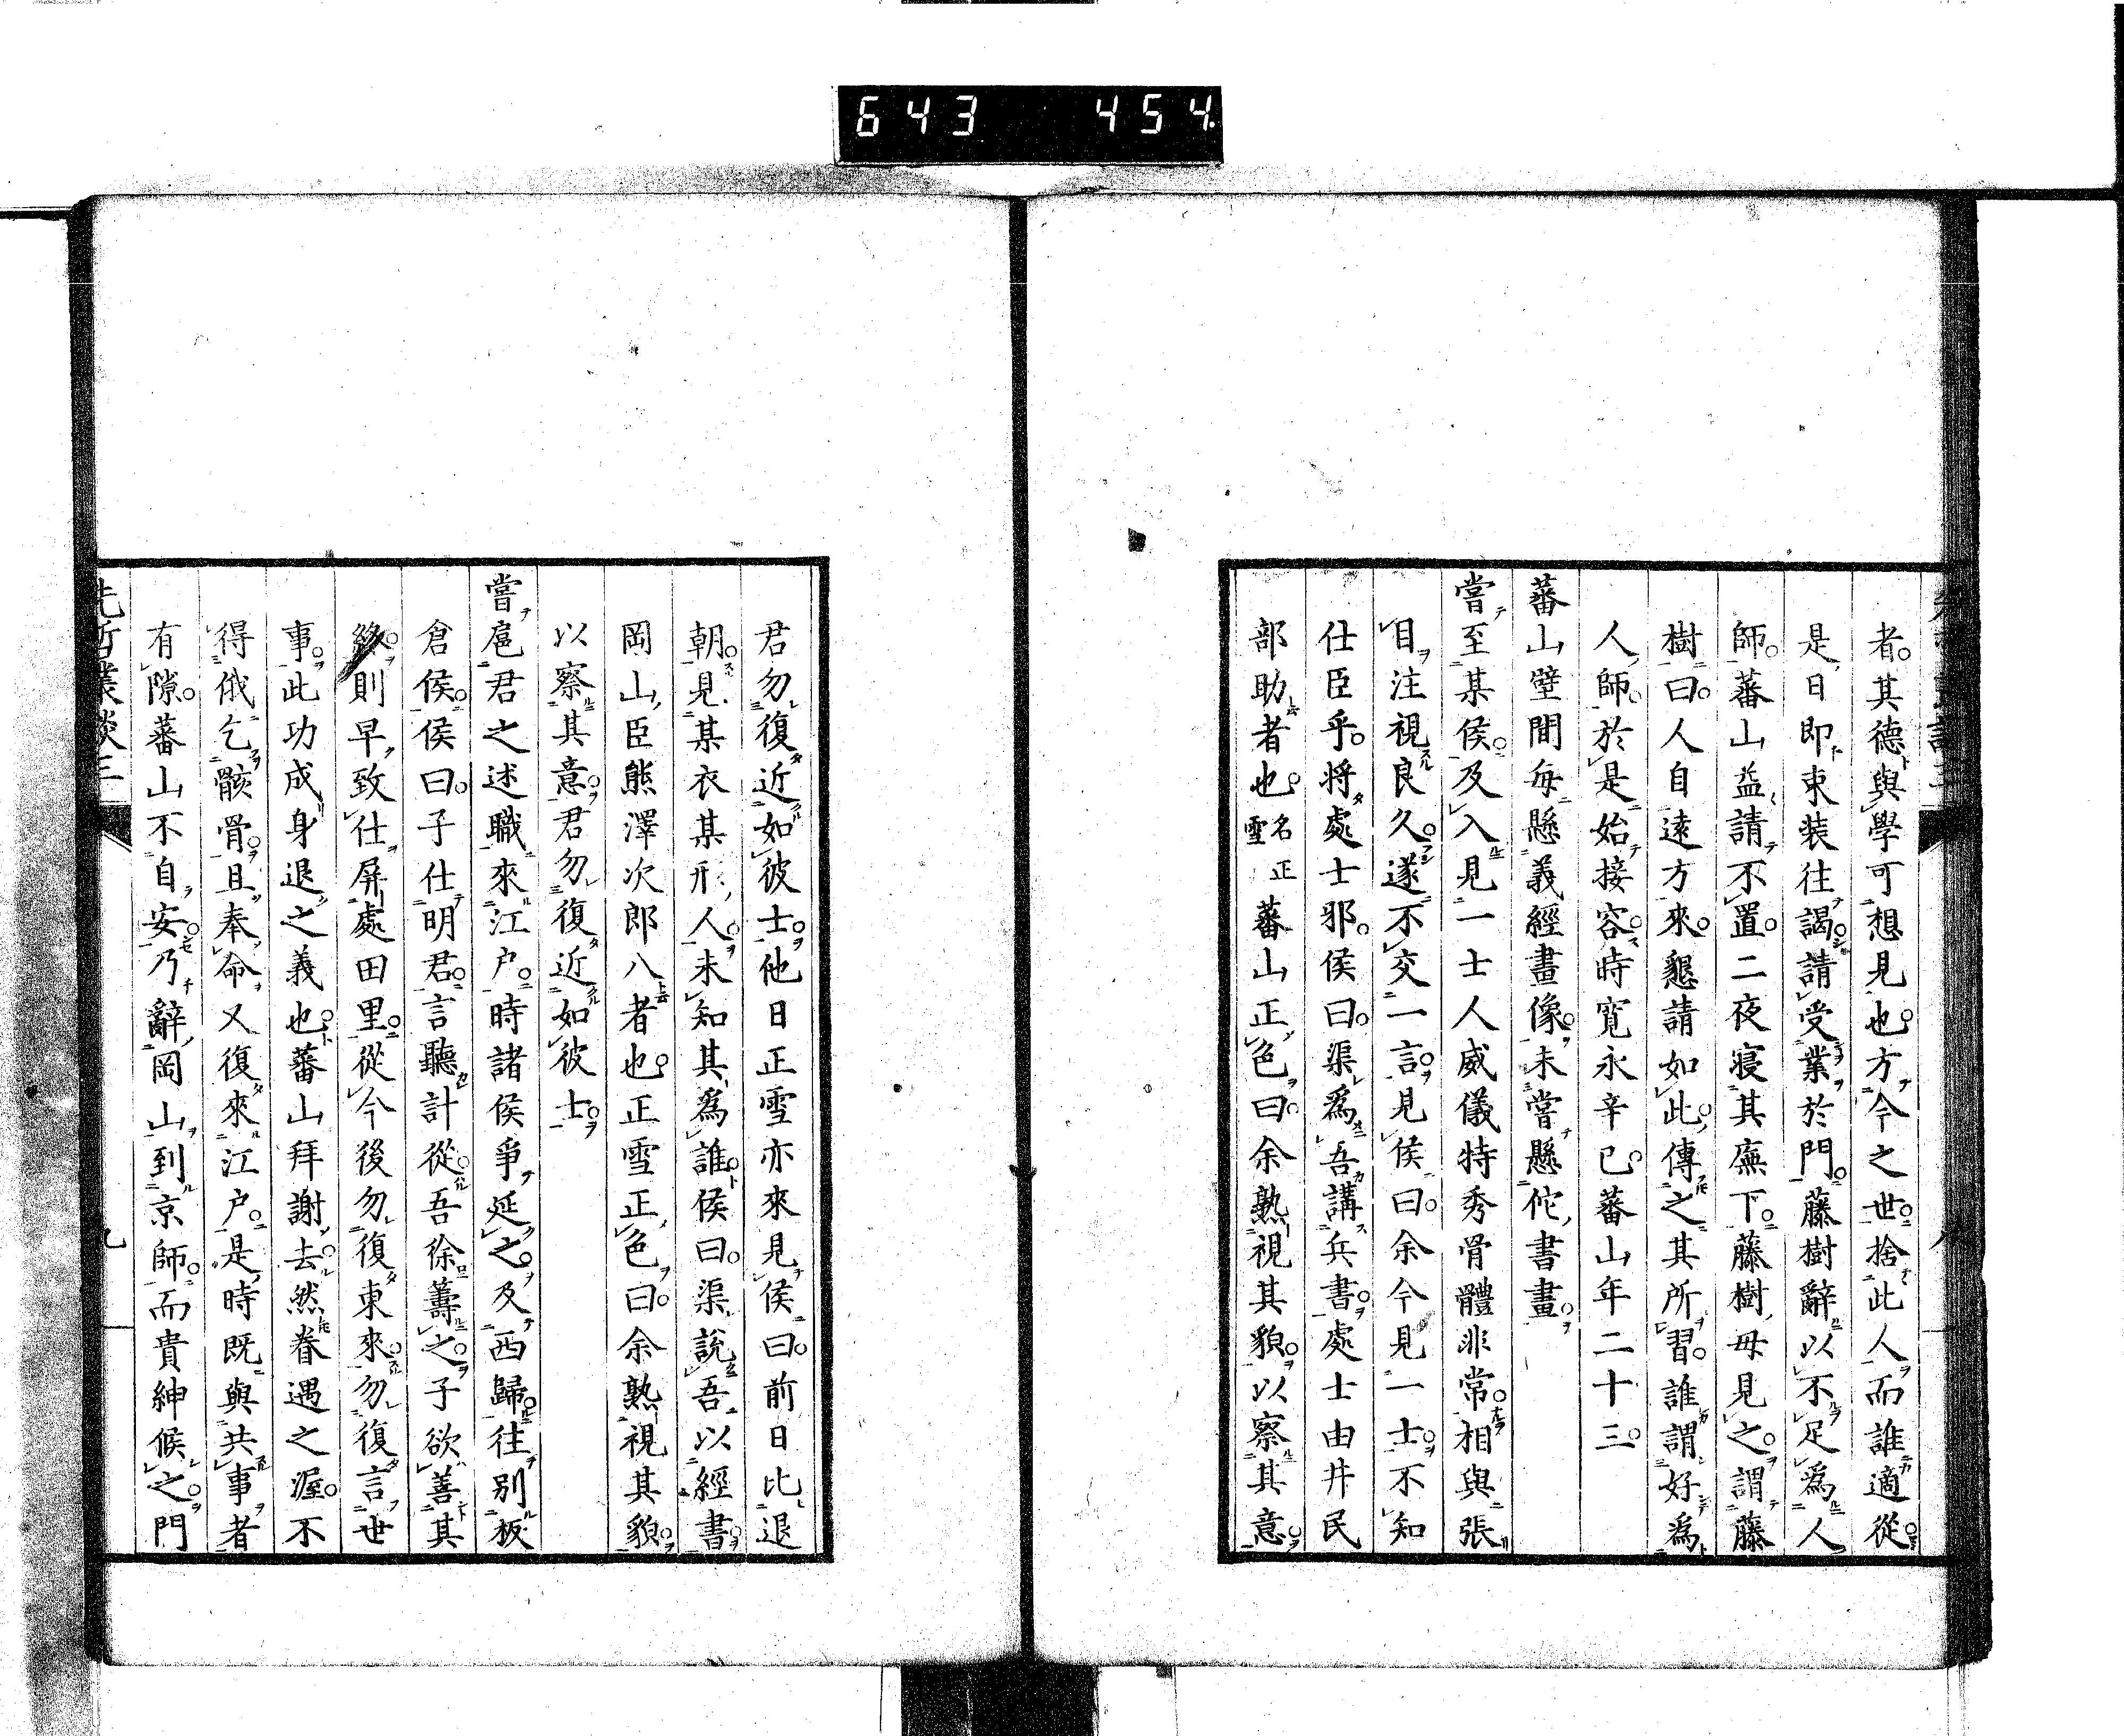 643 454
者其德與學可想見也方今之世捨此人而誰適從
是日即束装往謁請受業於門藤樹辭以不足爲人
師蕃山益請不置二夜寢其廡下藤樹母見之謂藤
樹曰人自遠方來懇請如此傳之其所習誰謂好爲
人師於是始接容時寛永辛巳蕃山年二十三
蕃山壁間每懸義經畫像未嘗懸佗書畫
嘗至某侯及入見一士人威儀特秀骨體非常相與張
目注視良久遂不交一言見侯曰余今見一士不知
仕臣乎將處士邪侯曰渠爲吾講兵書處士由井民
部助者也名正雪蕃山正色曰余熟視其貌以察其意
君勿復近如彼士他日正雪亦來見侯曰前日比退
朝見某衣某形人未知其爲誰侯曰渠說吾以經書
岡山臣熊澤次郎八者也正雪正色曰余熟視其貌
以察其意君勿復近如彼士
嘗扈君之述職來江戸時諸侯爭延之及西歸往別板
倉侯侯曰子仕明君言聽計從吾徐籌之子欲善其
終則早致仕屏處田里從今後勿復東來勿復言世
事此功成身退之義也蕃山拜謝去然眷遇之渥不
得俄乞骸骨且奉命又復來江戸是時既與共事者
有隙蕃山不自安乃辭岡山到京師而貴紳候之門
先哲叢談三
九